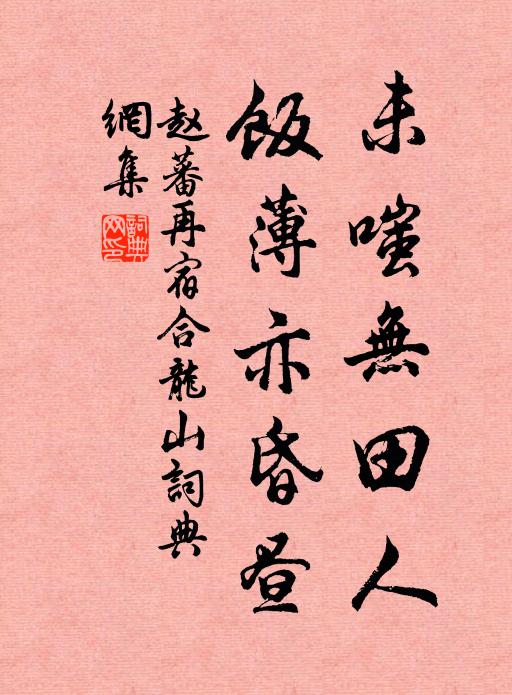 未嗤無田人
飯薄亦昏昼
赵蕃再宿合龍山詞典
網集
詞典
网印